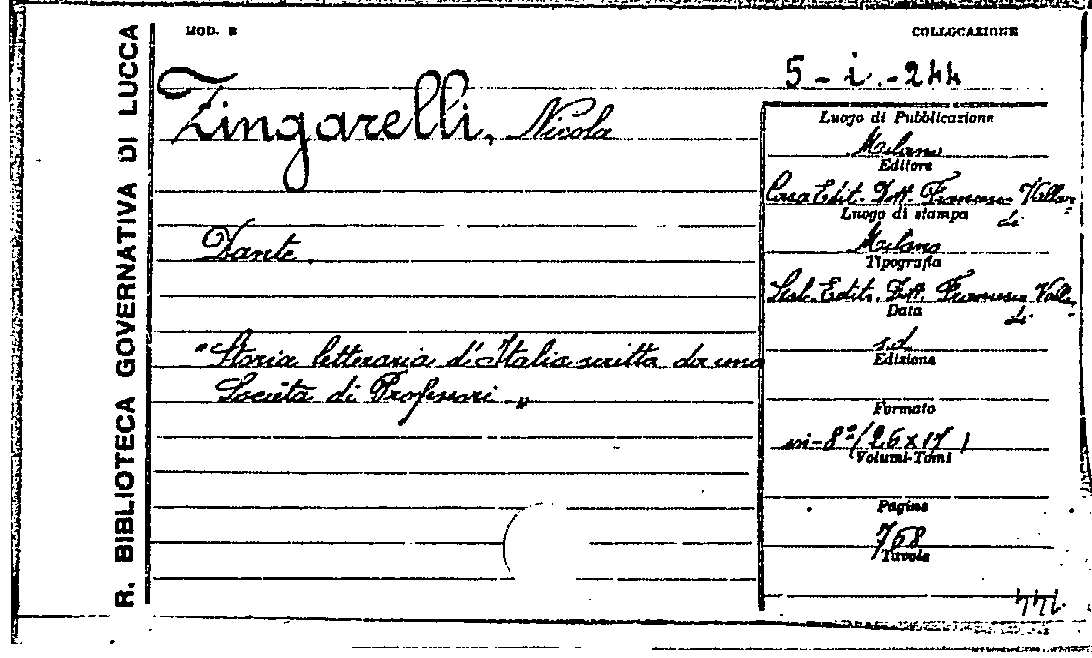 R. BIBLIOTECA GOVERNATIVA DI LUCCA
MOD. B
COLLOCAZIONE
5 - i. - 244
Zingarelli, Nicola
Dante.
"Storia letteraria d'Italia scritta da una
Società di Professori."
Luogo di Pubblicazione
Milano
Editore
Casa Edit. Dott. Francesco Vallar-
di
Luogo di stampa
Milano
Tipografia
Stab. Edit. Dott. Francesco Vallar-
di
Data
s.d.
Edizione
Formato
in-8°/26x17
Volumi-Tomi
Pagine
768
Tavole